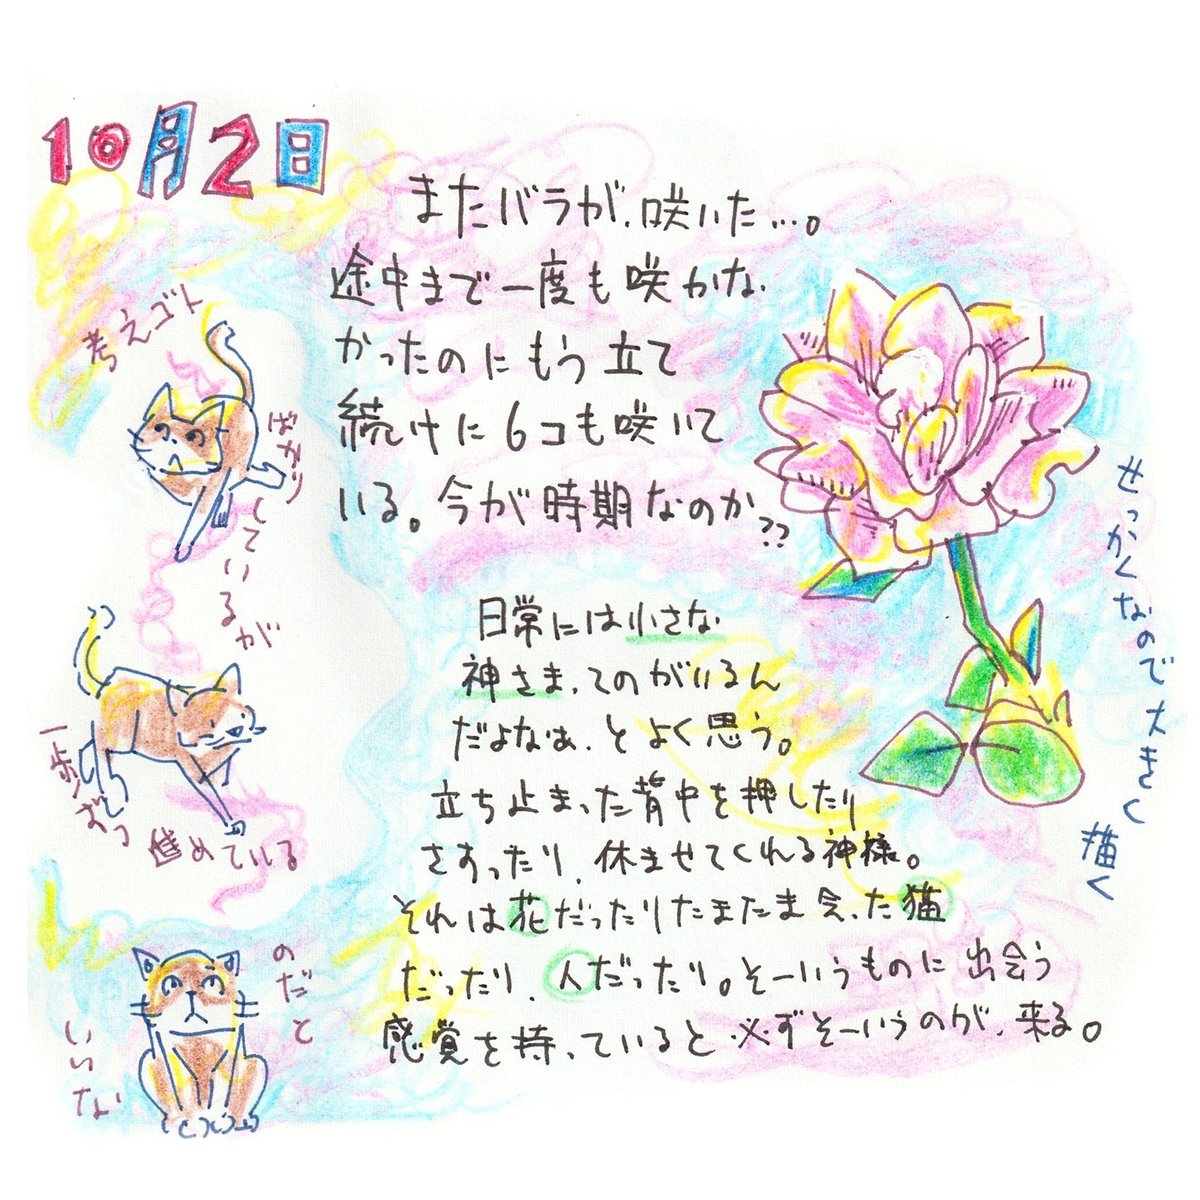 10月2日
またバラが、咲いた…。
途中まで一度も咲かな
かったのにもう立て
続けに6コも咲いて
いる。今が時期なのか??
日常には小さな
神さま、てのがいるん
だよなぁ、とよく思う。
立ち止まった背中を押したり
さすったり、休ませてくれる神様。
それは花だったりたまたま会った猫
だったり、人だったり。そーいうものに出会う
感覚を持っていると必ずそーいうのが、来る。
考えゴト
ばかり
しているが
一歩ずつ
進めている
のだと
いいな
せっかくなので大きく
描く